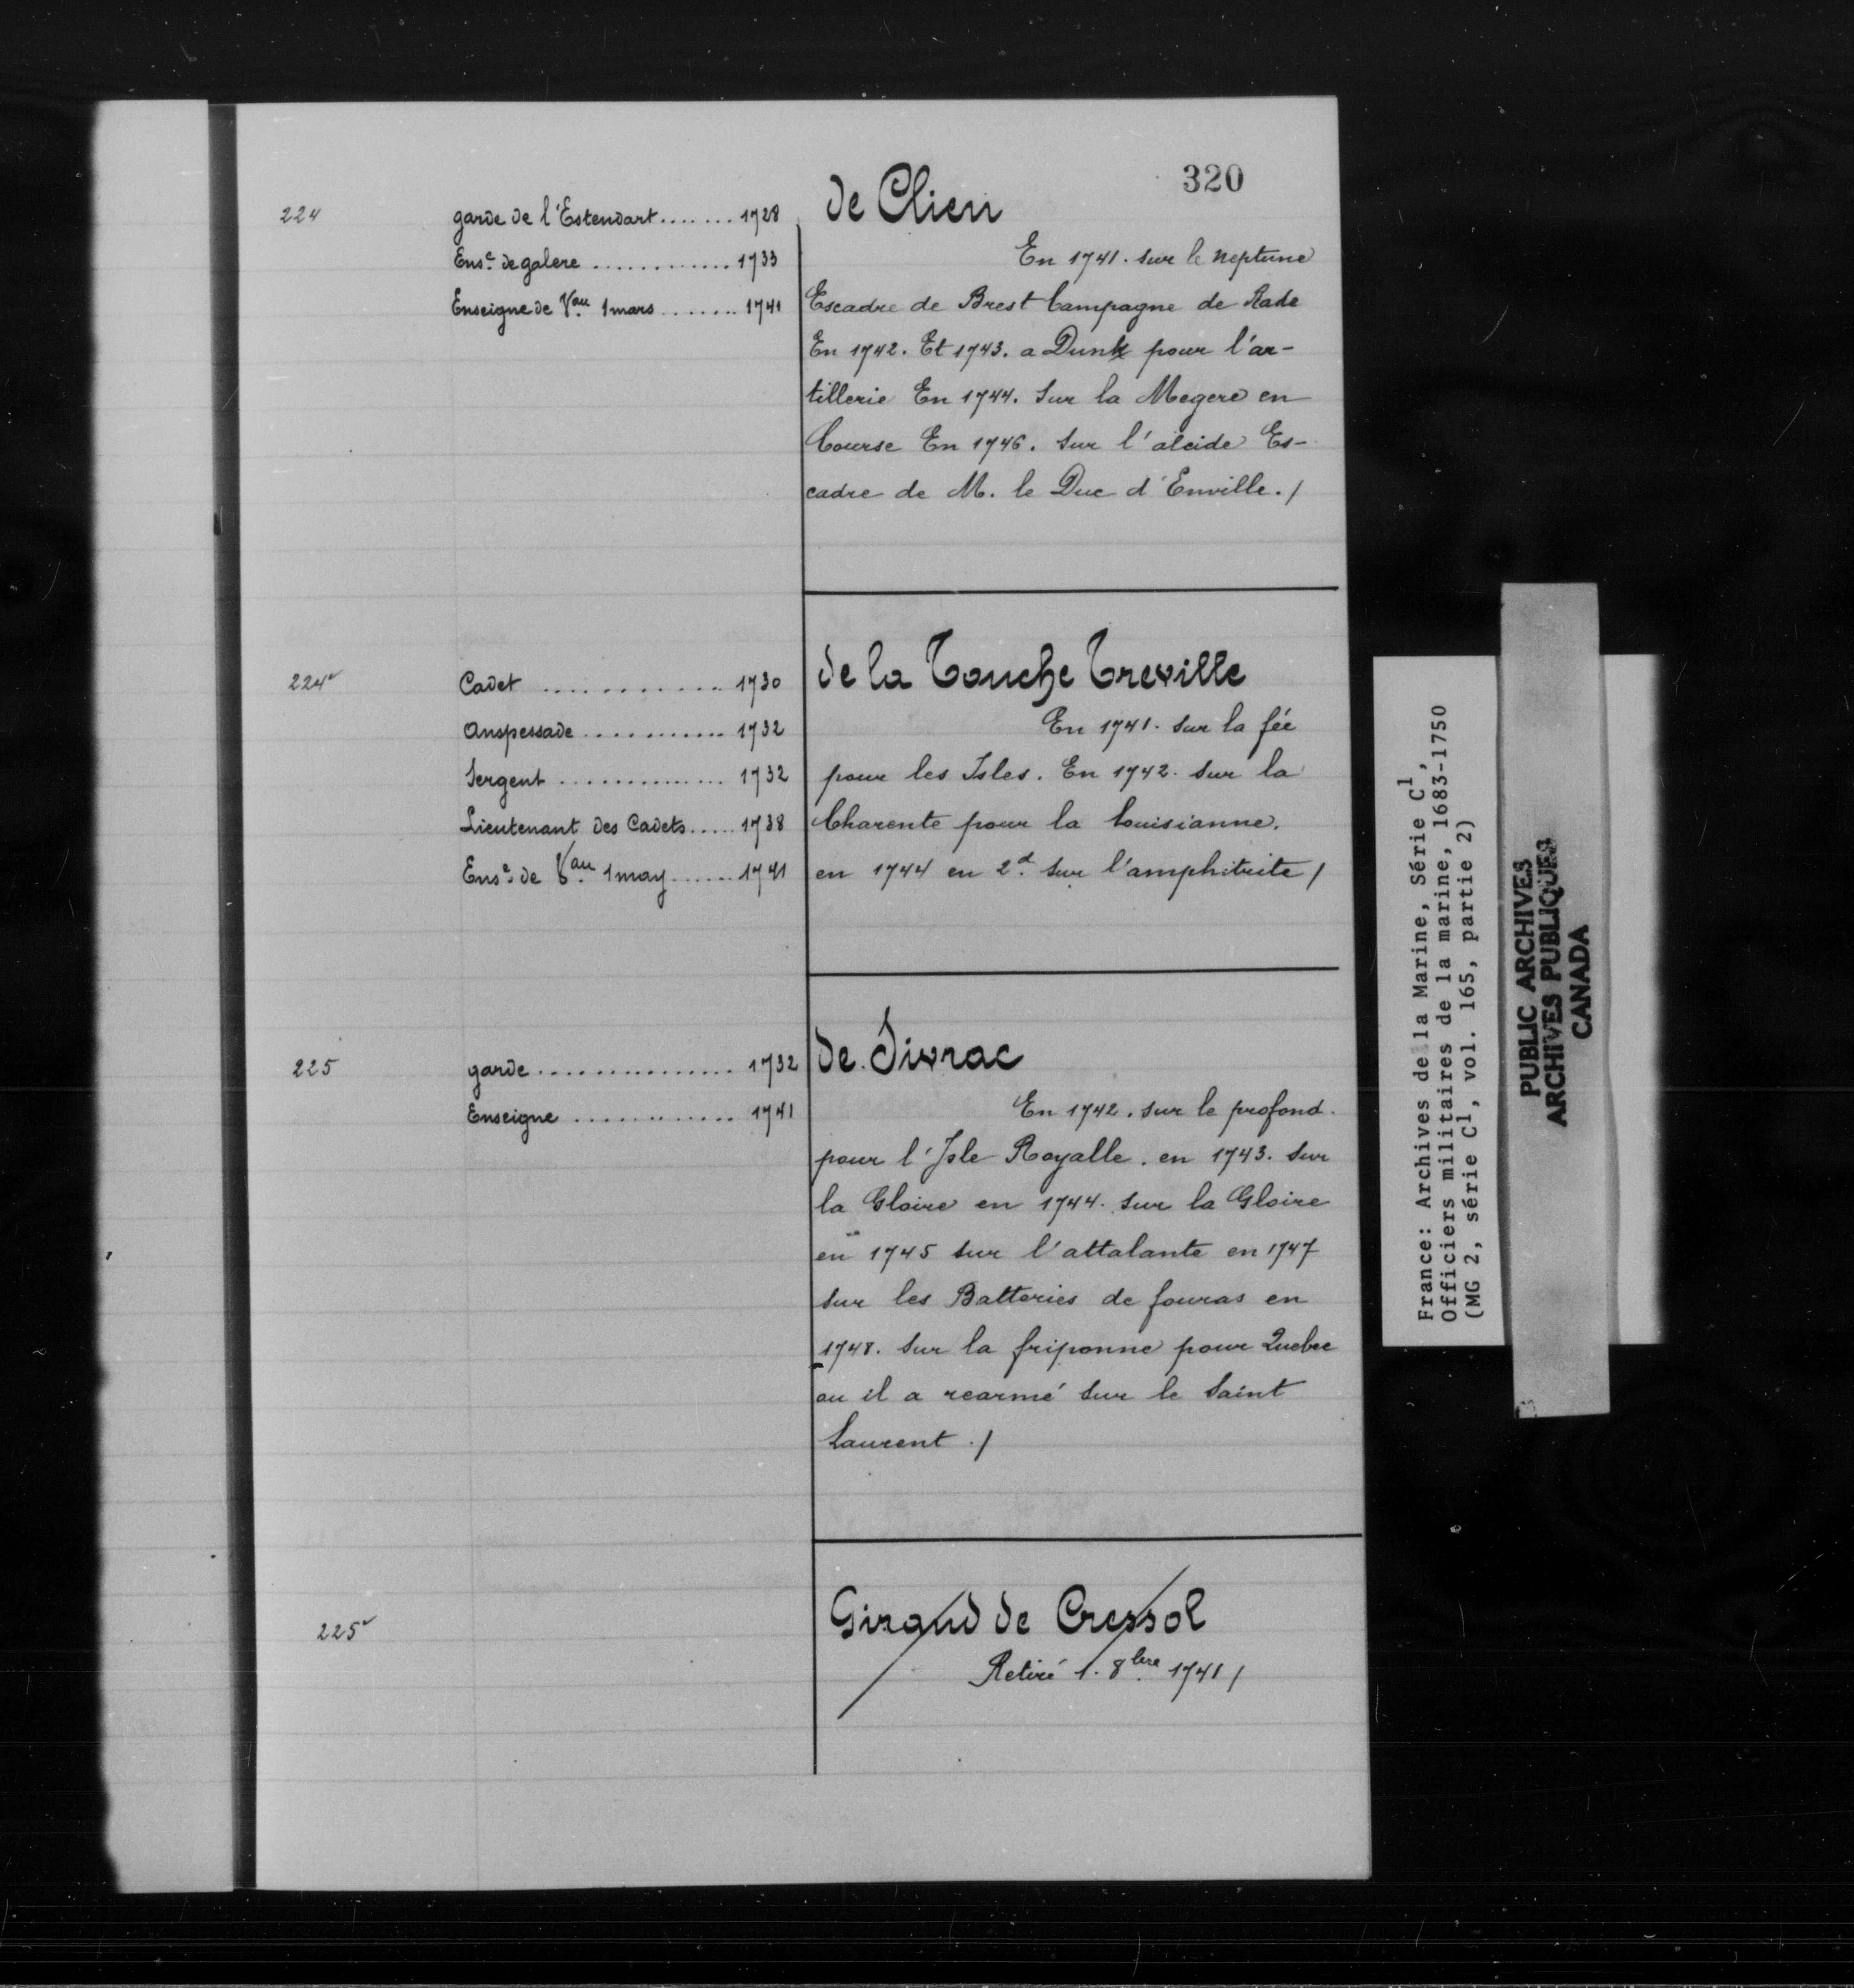 320
224
garde de l'Estendart ....... 1728
Ens.e de galere ............. 1733
Enseigne de Vau 1 mars ....... 1741
de Clien
En 1741. sur le neptune
Escadre de Brest Campagne de Rade
En 1742. Et 1743. a Dunk pour l'ar-
tillerie En 1744. sur la Megere en
Course En 1746. sur l'alcide Es-
cadre de M. le Duc d'Enville ./
224v
Cadet ............ 1730
Anspessade ........... 1732
Sergent .............. 1732
Lieutenant des Cadets ..... 1738
Ens.e de Vau 1 may ...... 1741
de la Touche Treville
En 1741. sur la fée
pour les Isles. En 1742. sur la
Charente pour la Louisianne.
en 1744 en 2.d sur l'amphitrite /
225
garde ............... 1732
Enseigne ............. 1741
de Sivrac
En 1742. sur le profond
pour l'Isle Royalle. en 1743. sur
la Gloire en 1744. sur la Gloire
en 1745 sur l'attalante en 1747
sur les Batteries de fouras en
1748. sur la friponne pour Quebec
ou il a rearmé sur le Saint
Laurent ./
225v
Giraud de Cressol
Retiré 1. 8bre 1741 /
France: Archives de la Marine, Série C1,
Officiers militaires de la marine, 1683-1750
(MG 2, série C1, vol. 165, partie 2)
PUBLIC ARCHIVES
ARCHIVES PUBLIQUES
CANADA